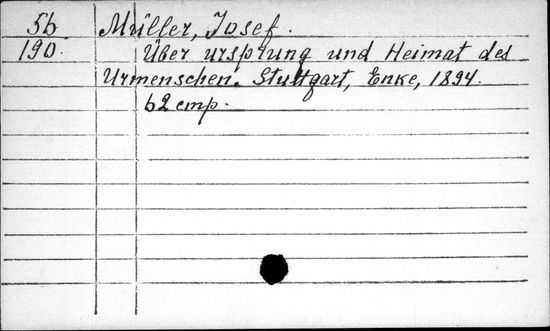 5b Müller, Josef.
190. Über ursprung und Heimat des
Urmenschen. Stuttgart, Enke, 1894.
62 стр.